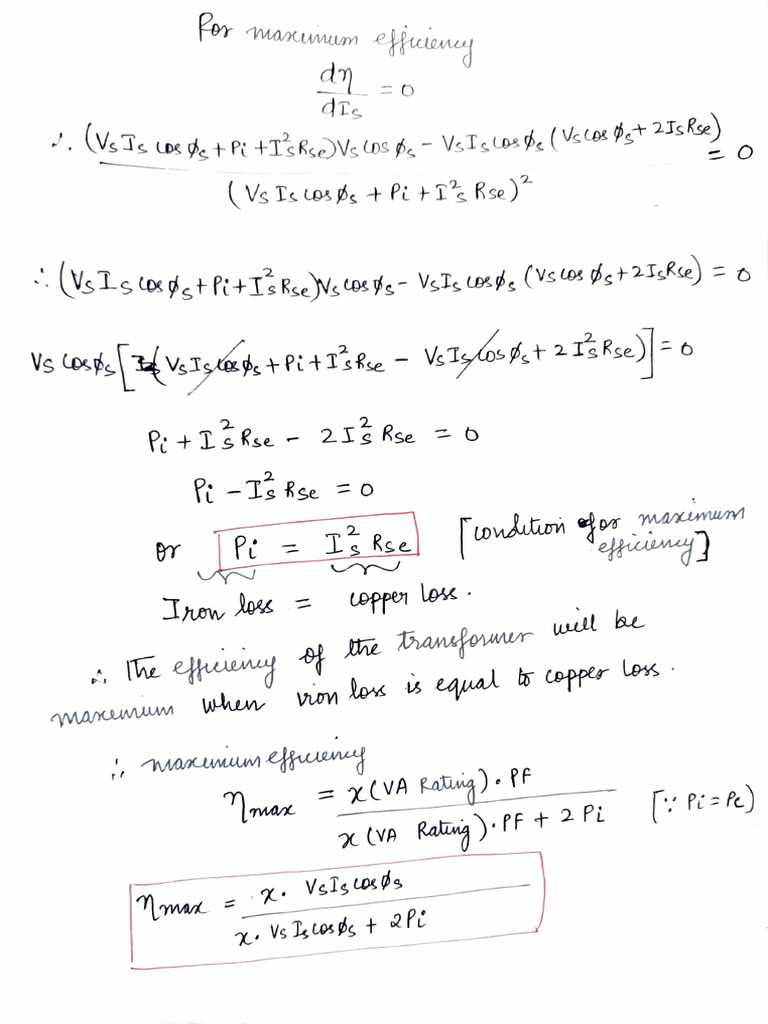 For maximum efficiency
dη/dIs = 0
∴ (Vs Is cos φs + Pi + Is² Rse) Vs cos φs - Vs Is cos φs (Vs cos φs + 2 Is Rse) / (Vs Is cos φs + Pi + Is² Rse)² = 0
∴ (Vs Is cos φs + Pi + Is² Rse) Vs cos φs - Vs Is cos φs (Vs cos φs + 2 Is Rse) = 0
Vs cos φs [(Vs Is cos φs + Pi + Is² Rse - Vs Is cos φs + 2 Is² Rse)] = 0
Pi + Is² Rse - 2 Is² Rse = 0
Pi - Is² Rse = 0
or Pi = Is² Rse [condition for maximum efficiency]
Iron loss = copper loss.
∴ The efficiency of the transformer will be
maximum when iron loss is equal to copper loss.
∴ maximum efficiency
ηmax = x (VA Rating) . PF / x (VA Rating) . PF + 2 Pi [∵ Pi = Pc)
ηmax = x . Vs Is cos φs / x . Vs Is cos φs + 2 Pi